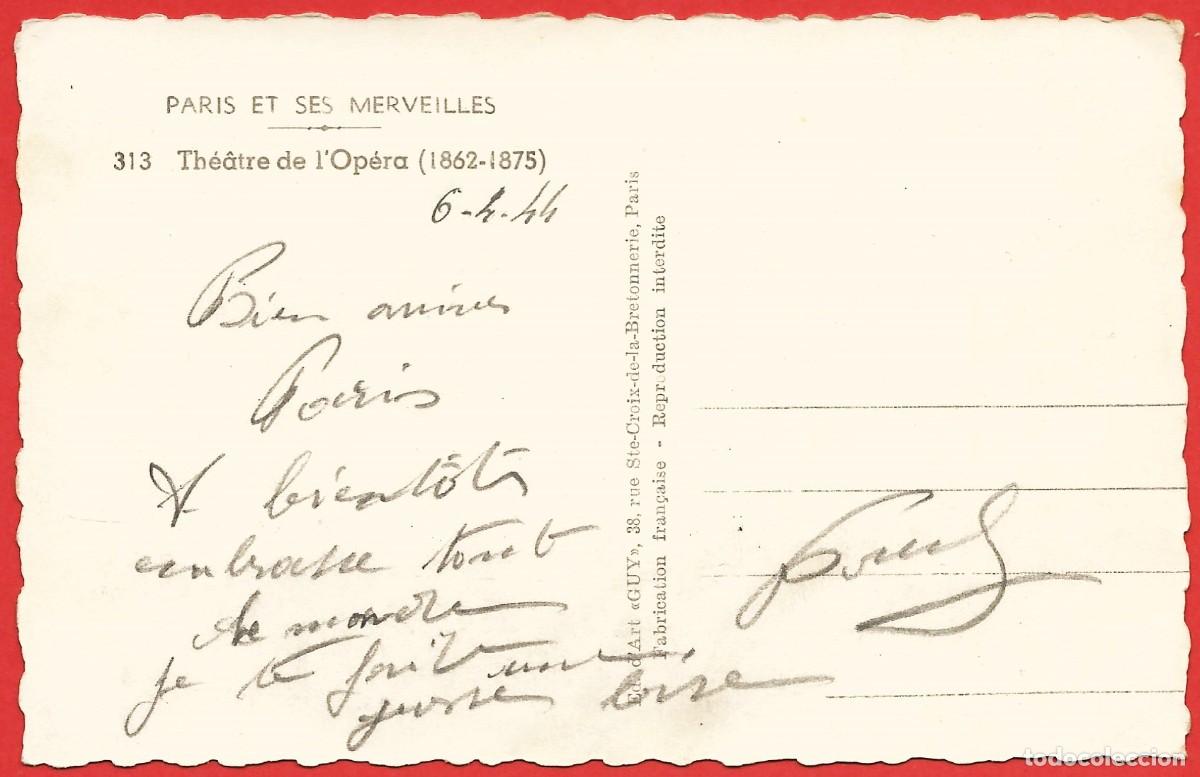 PARIS ET SES MERVEILLES
313 Théâtre de l'Opéra (1862-1875)
6-4.44
Bien arrivée
Paris
A bientôt
embrasse tout
le monde
je te fait une
grosse bise
Ed. d'Art «GUY», 38, rue Ste-Croix-de-la-Bretonnerie, Paris
Fabrication française - Reproduction interdite
todocoleccion